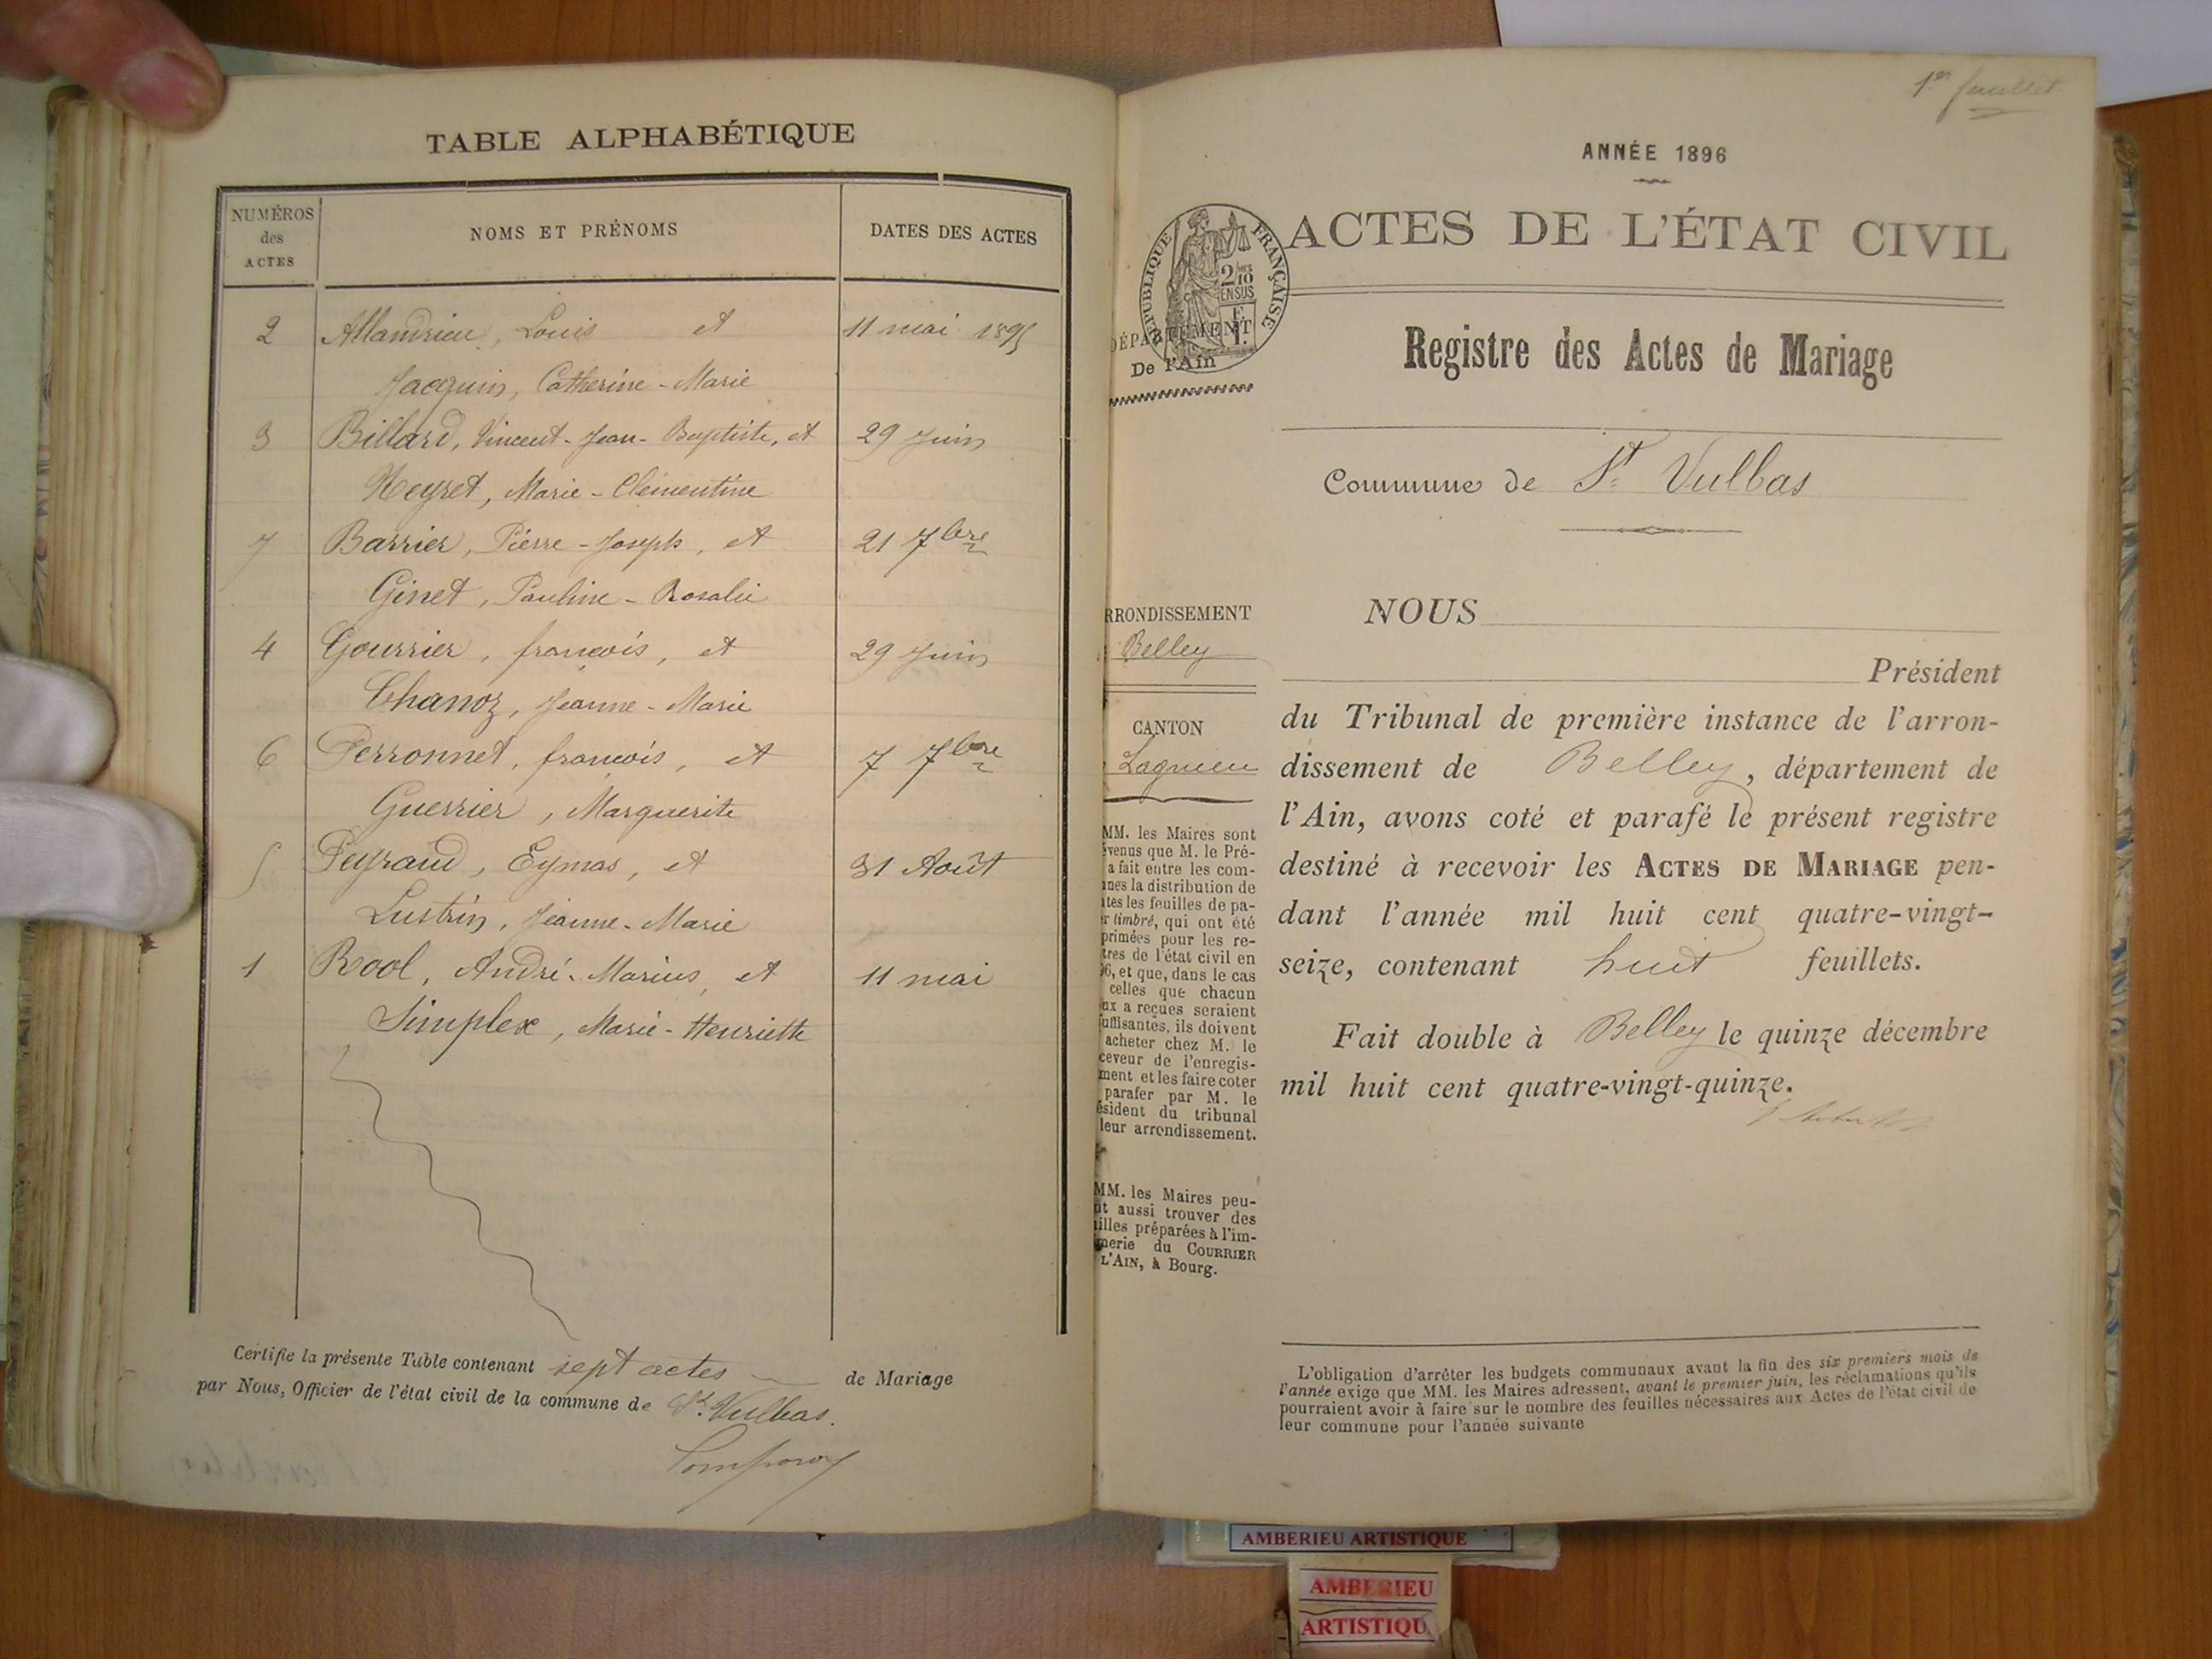 TABLE ALPHABÉTIQUE
NUMÉROS des ACTES
NOMS ET PRÉNOMS
DATES DES ACTES
2 Allandrieu, Louis et 11 mai 1895
Jacquin, Catherine-Marie
3 Billard, Vincent-Jean-Baptiste, et 29 Juin
Neyret, Marie-Clémentine
7 Barrier, Pierre-Joseph, et 21 7bre
Ginet, Pauline-Rosalie
4 Gourrier, françois, et 29 Juin
Chanoz, Jeanne-Marie
6 Perronnet, françois, et 7 7bre
Guerrier, Marguerite
5 Peyraud, Eymas, et 31 Août
Lustrin, Jeanne-Marie
1 Rool, André-Marius, et 11 mai
Simplex, Marie-Henriette
Certifie la présente Table contenant sept actes de Mariage
par Nous, Officier de l'état civil de la commune de St. Vulbas.
1er feuillet
ANNÉE 1896
ACTES DE L'ÉTAT CIVIL
RÉPUBLIQUE FRANÇAISE
2/10 EN SUS
DÉPARTEMENT
De l'Ain
Registre des Actes de Mariage
Commune de St Vulbas
RRONDISSEMENT
Belley
CANTON
Lagnieu
MM. les Maires sont
évenus que M. le Pré-
a fait entre les com-
nes la distribution de
tes les feuilles de pa-
r timbré, qui ont été
primées pour les re-
tres de l'état civil en
96, et que, dans le cas
celles que chacun
ux a reçues seraient
uffisantes, ils doivent
acheter chez M. le
ceveur de l'enregis-
ment et les faire coter
parafer par M. le
ésident du tribunal
leur arrondissement.
MM. les Maires peu-
nt aussi trouver des
illes préparées à l'im-
merie du COURRIER
L'AIN, à Bourg.
NOUS
Président
du Tribunal de première instance de l'arron-
dissement de Belley, département de
l'Ain, avons coté et parafé le présent registre
destiné à recevoir les ACTES DE MARIAGE pen-
dant l'année mil huit cent quatre-vingt-
seize, contenant huit feuillets.
Fait double à Belley le quinze décembre
mil huit cent quatre-vingt-quinze.
L'obligation d'arrêter les budgets communaux avant la fin des six premiers mois de
l'année exige que MM. les Maires adressent, avant le premier juin, les réclamations qu'ils
pourraient avoir à faire sur le nombre des feuilles nécessaires aux Actes de l'état civil de
leur commune pour l'année suivante
AMBERIEU ARTISTIQUE
AMBERIEU
ARTISTIQU